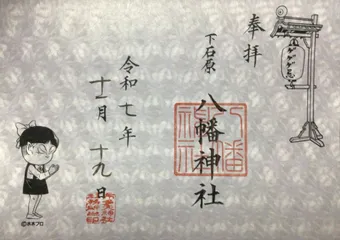 奉拝
下石原
八幡神社
令和七年
十一月十九日
©水木プロ